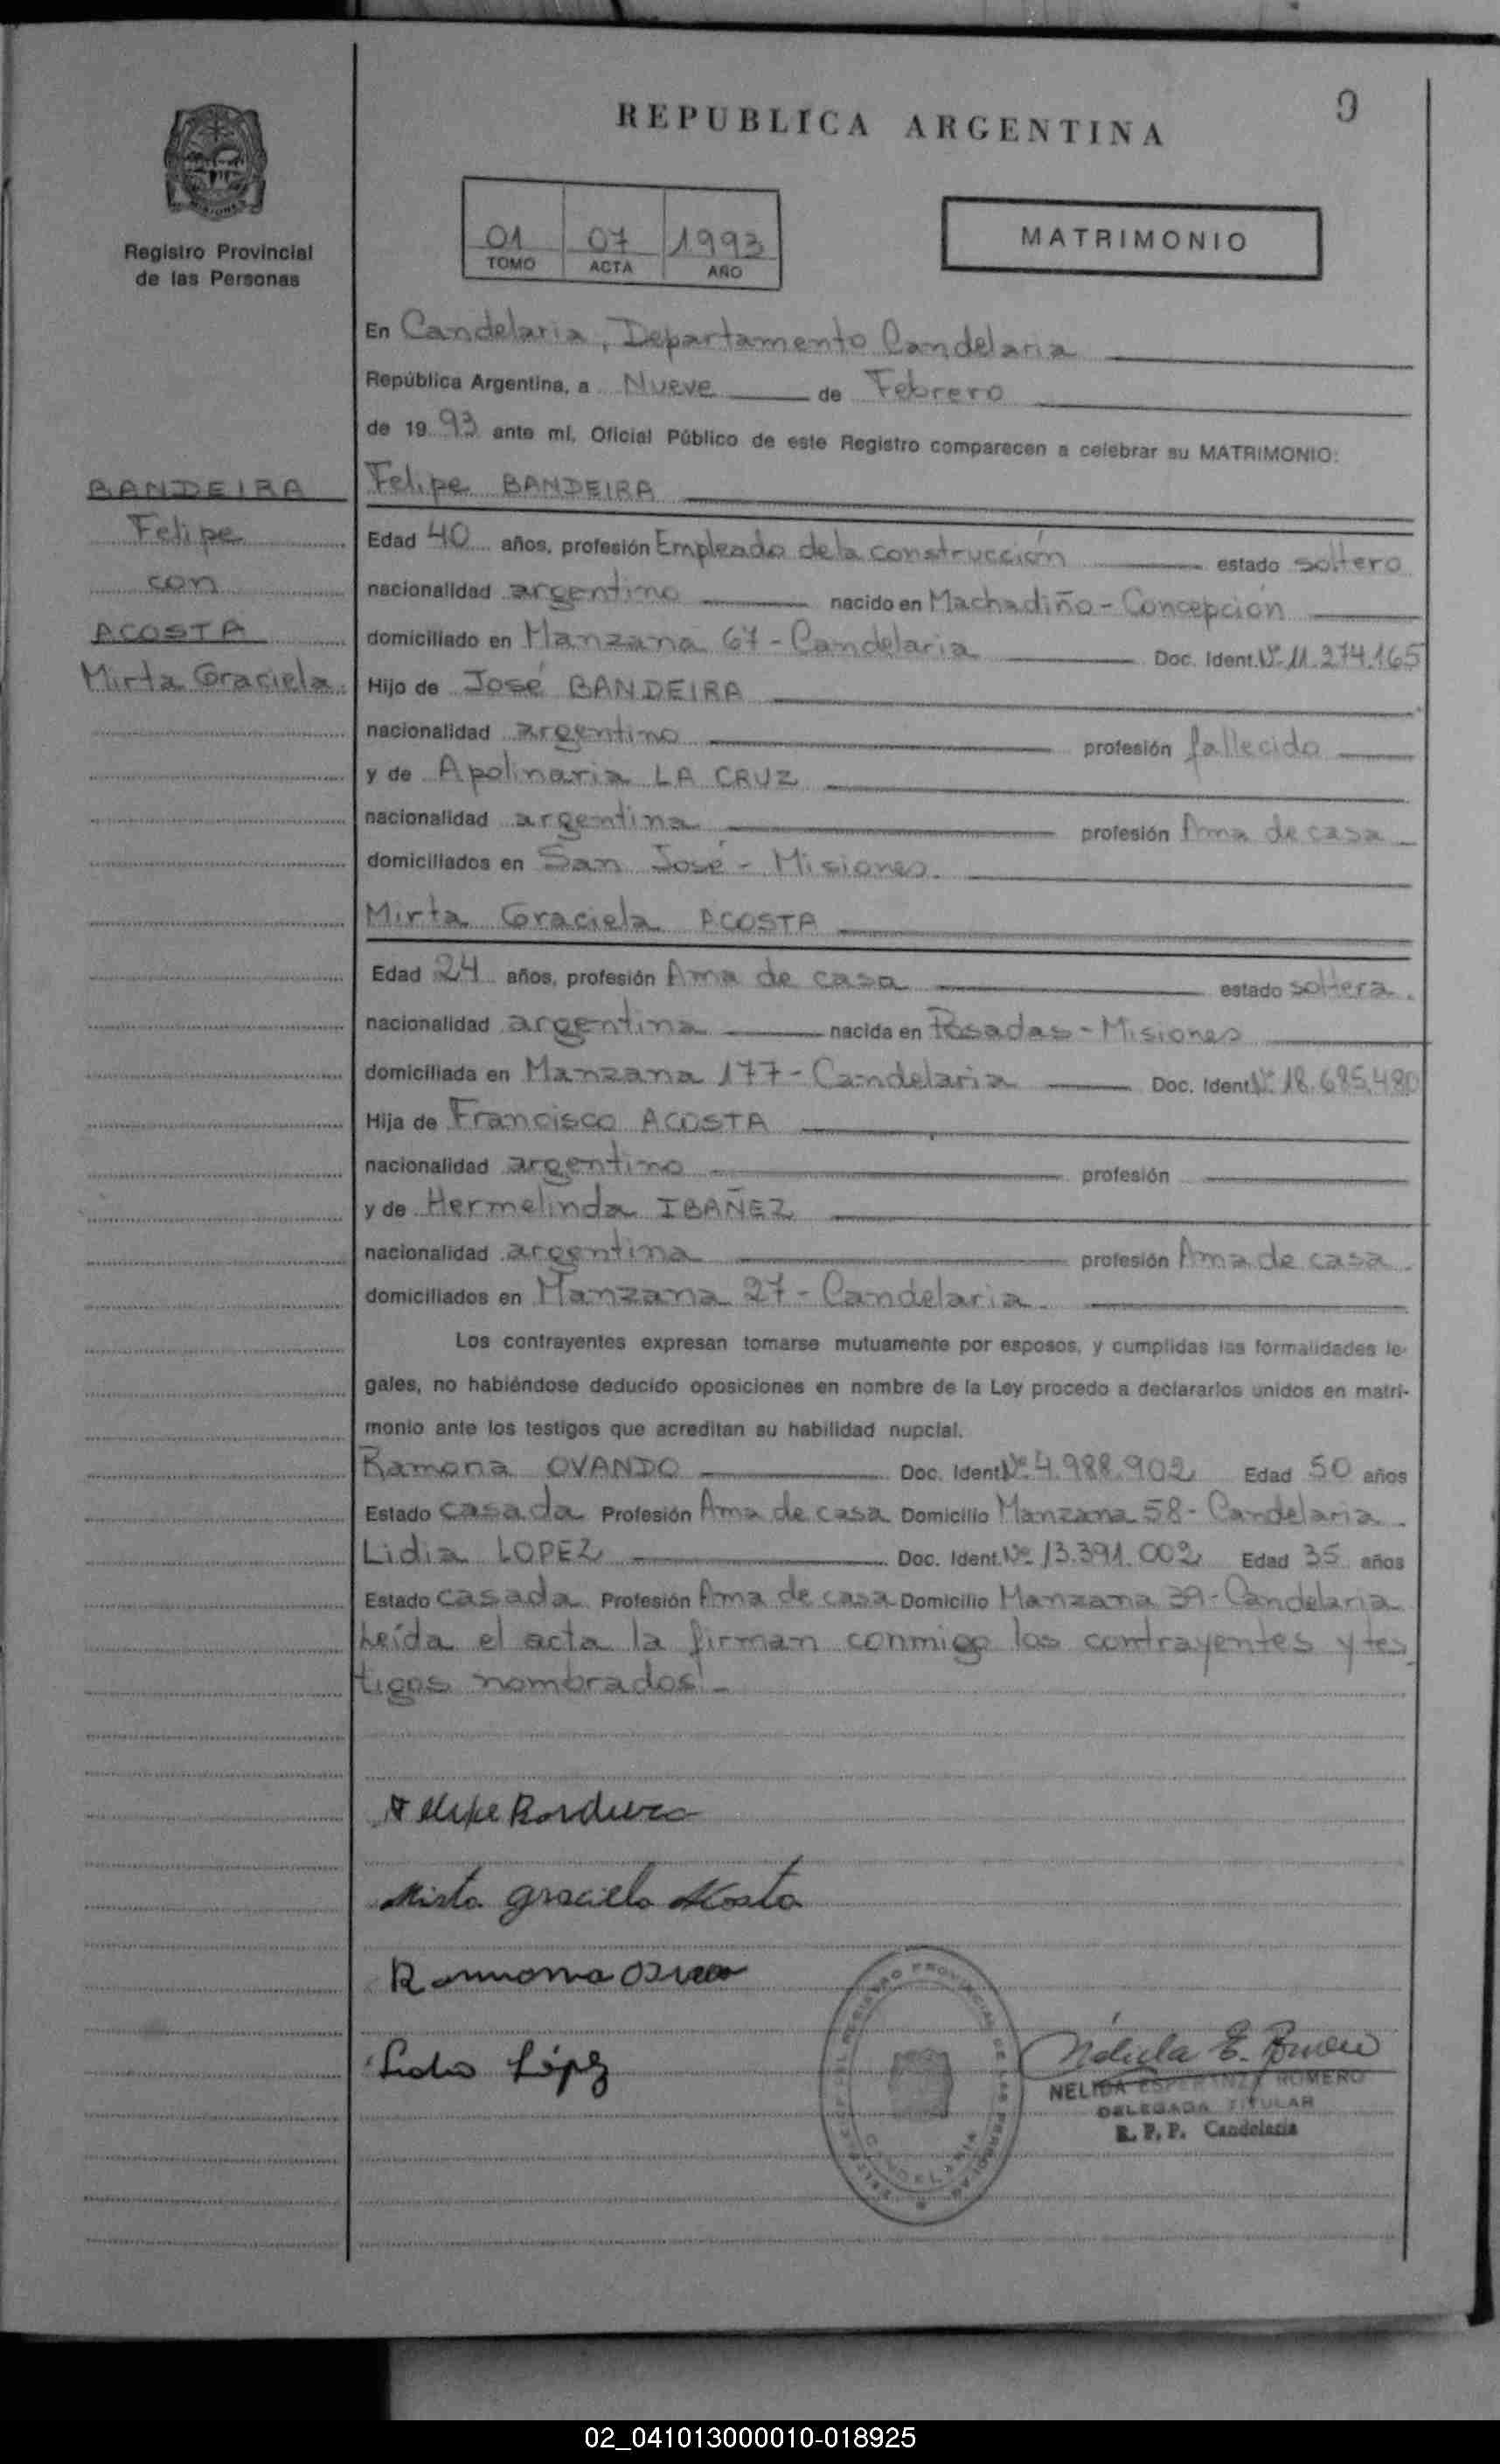 REPUBLICA ARGENTINA
9
Registro Provincial
de las Personas
01 07 1993
TOMO ACTA AÑO
MATRIMONIO
En Candelaria, Departamento Candelaria
República Argentina, a Nueve de Febrero
de 1993 ante mí, Oficial Público de este Registro comparecen a celebrar su MATRIMONIO:
BANDEIRA
Felipe
con
ACOSTA
Mirta Graciela
Felipe BANDEIRA
Edad 40 años, profesión Empleado de la construcción estado soltero
nacionalidad argentino nacido en Machadiño - Concepción
domiciliado en Manzana 67 - Candelaria Doc. Ident. Nº 11.274.165
Hijo de José BANDEIRA
nacionalidad argentino profesión fallecido
y de Apolinaria LA CRUZ
nacionalidad argentina profesión Ama de casa
domiciliados en San José - Misiones.
Mirta Graciela ACOSTA
Edad 24 años, profesión Ama de casa estado soltera.
nacionalidad argentina nacida en Posadas - Misiones
domiciliada en Manzana 177 - Candelaria Doc. Ident. Nº 18.685.480
Hija de Francisco ACOSTA
nacionalidad argentino profesión
y de Hermelinda IBAÑEZ
nacionalidad argentina profesión Ama de casa.
domiciliados en Manzana 27 - Candelaria.
Los contrayentes expresan tomarse mutuamente por esposos, y cumplidas las formalidades le-
gales, no habiéndose deducido oposiciones en nombre de la Ley procedo a declararlos unidos en matri-
monio ante los testigos que acreditan su habilidad nupcial.
Ramona OVANDO Doc. Ident. Nº 4.988.902 Edad 50 años
Estado casada Profesión Ama de casa Domicilio Manzana 58 - Candelaria.
Lidia LOPEZ Doc. Ident. Nº 13.391.002 Edad 35 años
Estado casada Profesión Ama de casa Domicilio Manzana 39 - Candelaria
Leída el acta la firman conmigo los contrayentes y tes
tigos nombrados.-
Felipe Bandeira
Mirta graciela Acosta
Ramona
Lidia López
Nélida E. Romero
NELIDA ESPERANZA ROMERO
DELEGADA TITULAR
R. P. P. Candelaria
REGISTRO PROVINCIAL DE LAS PERSONAS
CANDELARIA
02_041013000010-018925